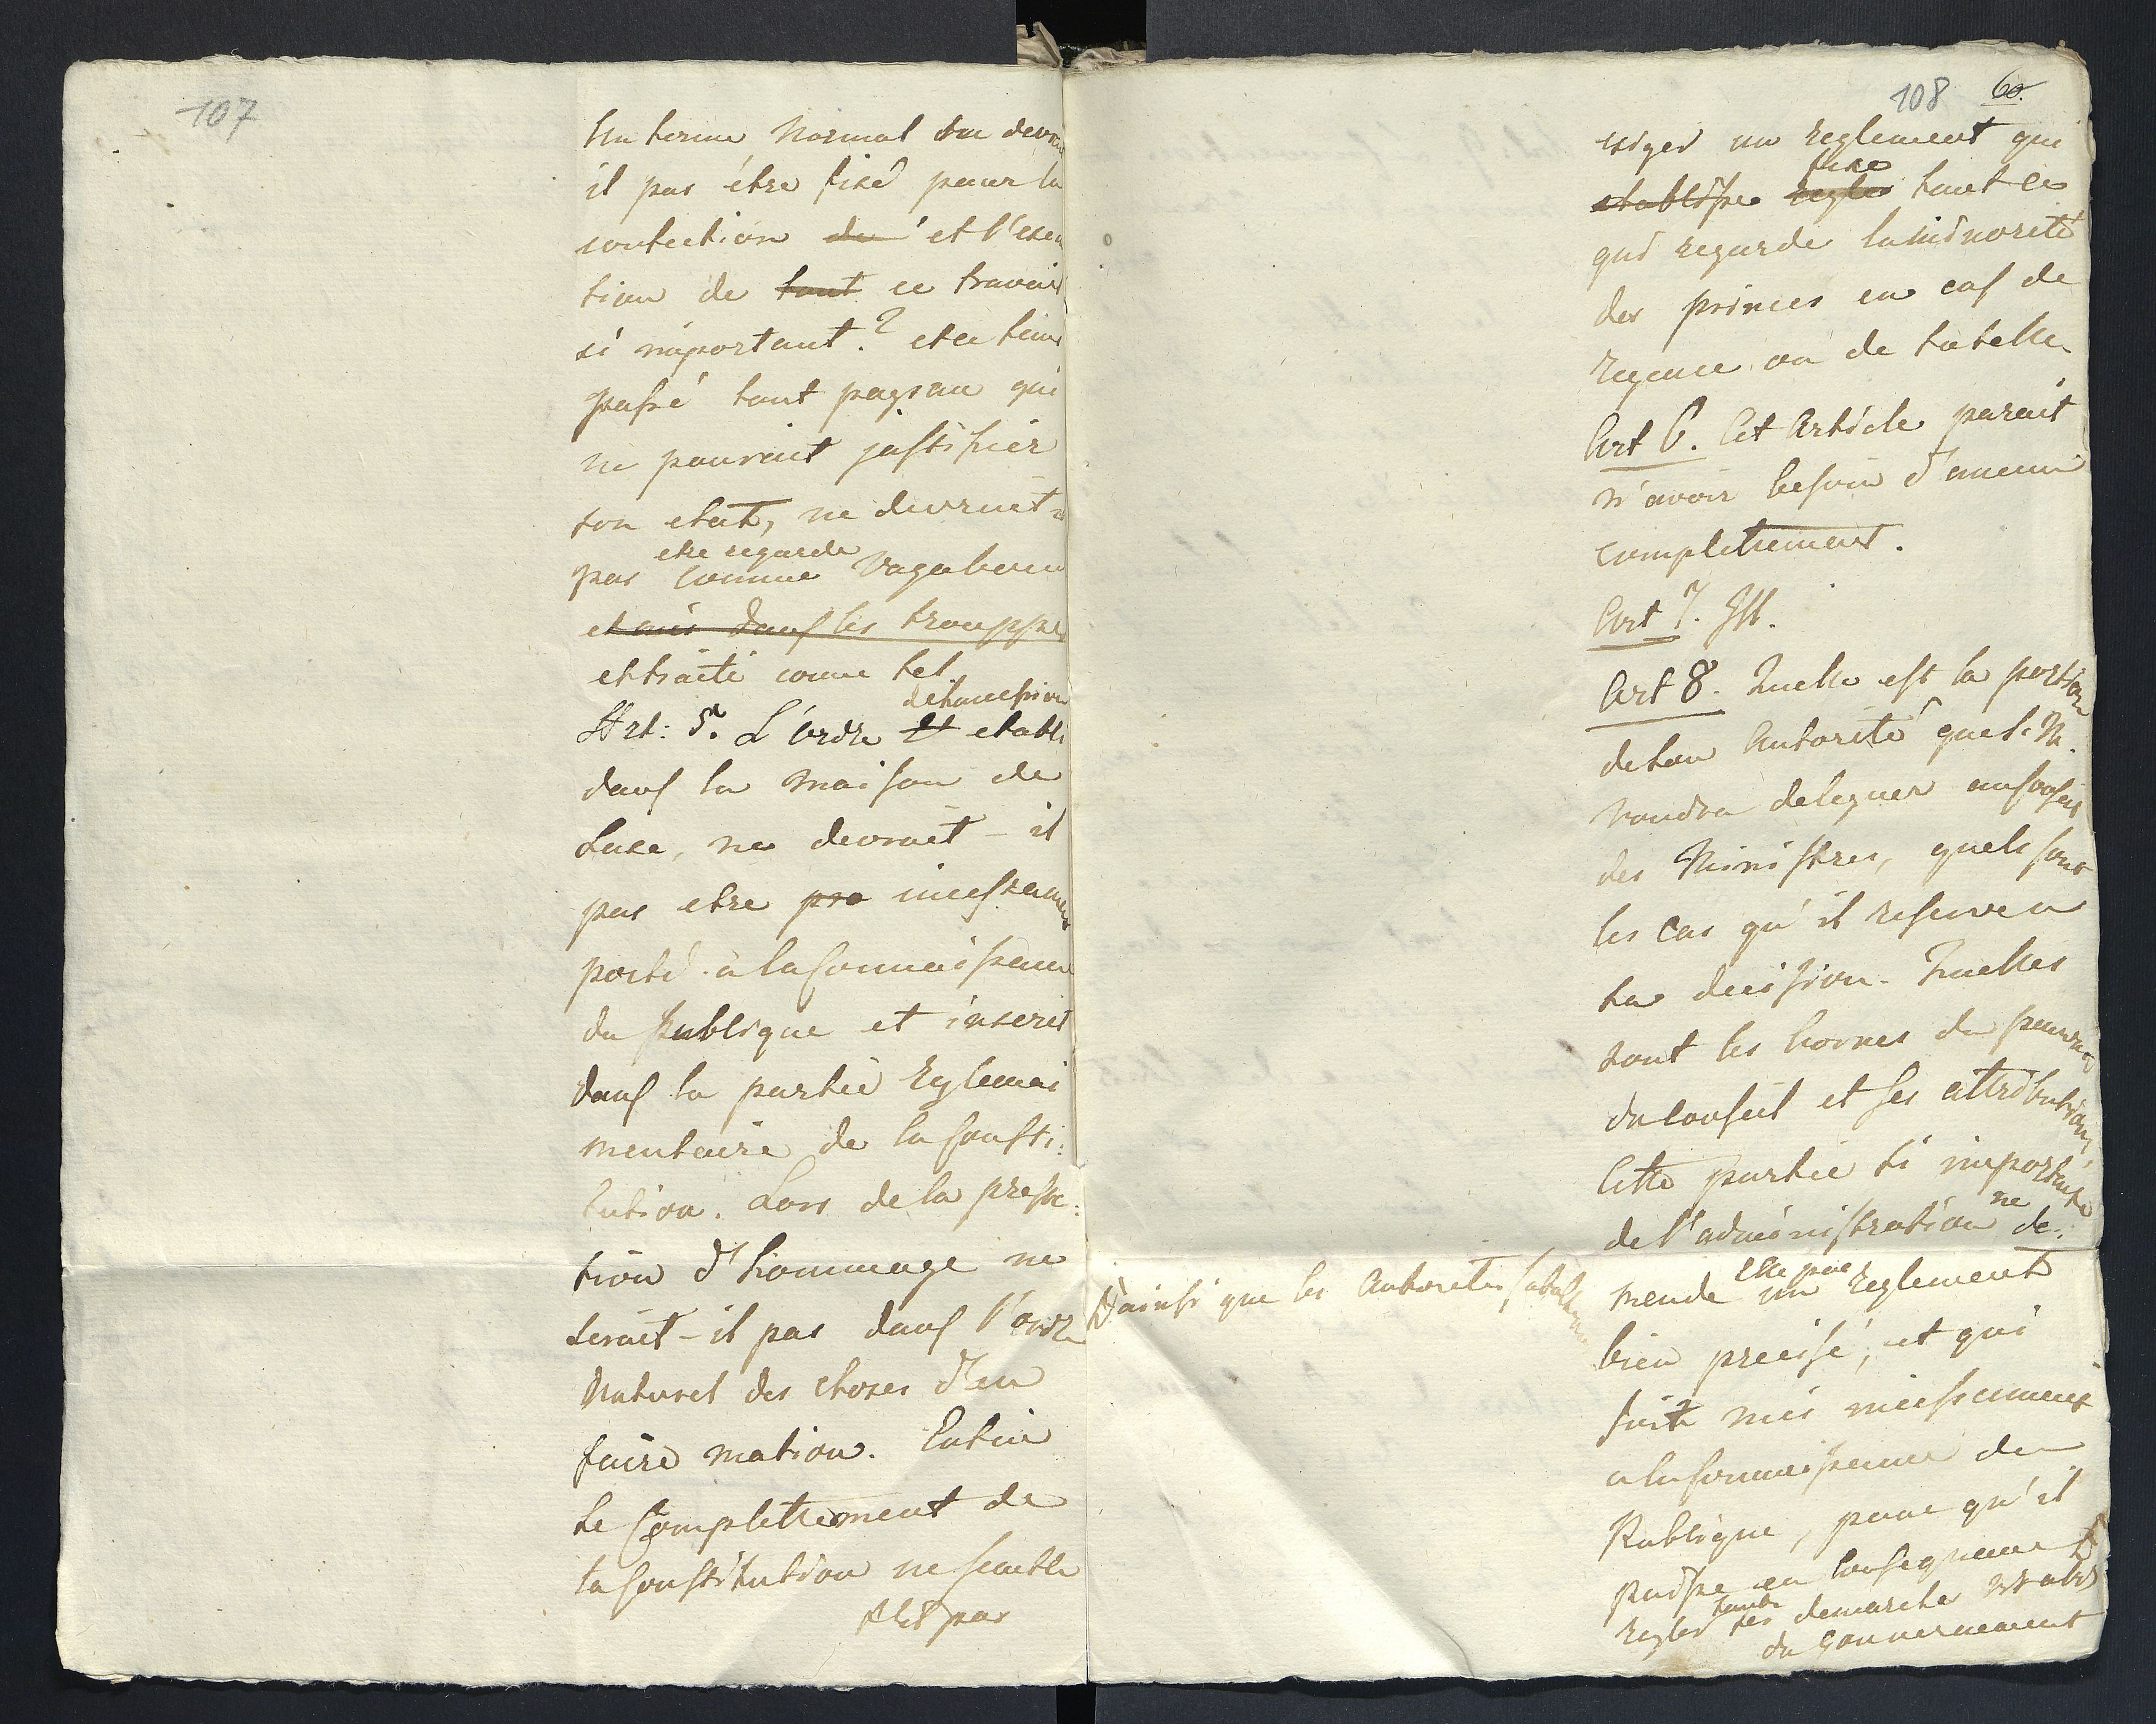 107
Un terme Normal ne devrait
il pas être fixé pour la
confection de et l'execu
tion de tout ce travail
si important? et ce tems
passé tout paysan qui
ne pouroit justifier
son etat, ne devroit-
etre regarde
pas comme Vagabond
et mis dans les trouppes
et traité come tel.
de succession
Art: 5. L'ordre et etabli
dans la maison de
Saxe, ne devroit-il
pas etre pro incessament
porté a la Connaissance
du Publique et inseré
dans la partie Reglemen
mentaire de la Consti:
tution. Lors de la presta:
tion d'hommage ne
seroit-il pas dans l'ordre
Naturel des choses d'en
faire mation. Enfin
le Complettement de
la Constitution ne semble
t-il pas
108 60.
exiger un reglement qui
fixe
etablisse regle tout ce
qui regarde la minorité
des princes en cas de
regence ou de tutelle.
Art 6. Cet Article parait
n'avoir besoin d'aucun
complettement.
Art 7. Ill.
Art 8. Quelle est la portion
de son Autorité que S. M.
voudra deleguer au Conseil
des Ministres, quels sont
les cas qu'il reserve a
sa decision. Quelles
sont les bornes du pouvoir
du Conseil et ses attributions,
Cette partie si importante
de l'administration ne de:
ainsi que les Autorités
Elle pas
mende un reglement
bien precisé, et qui
soit mis incessamment
a la connaissance du
Publique, pour qu'il
puisse en Consequence
regler ses demarche
du Gouvernement